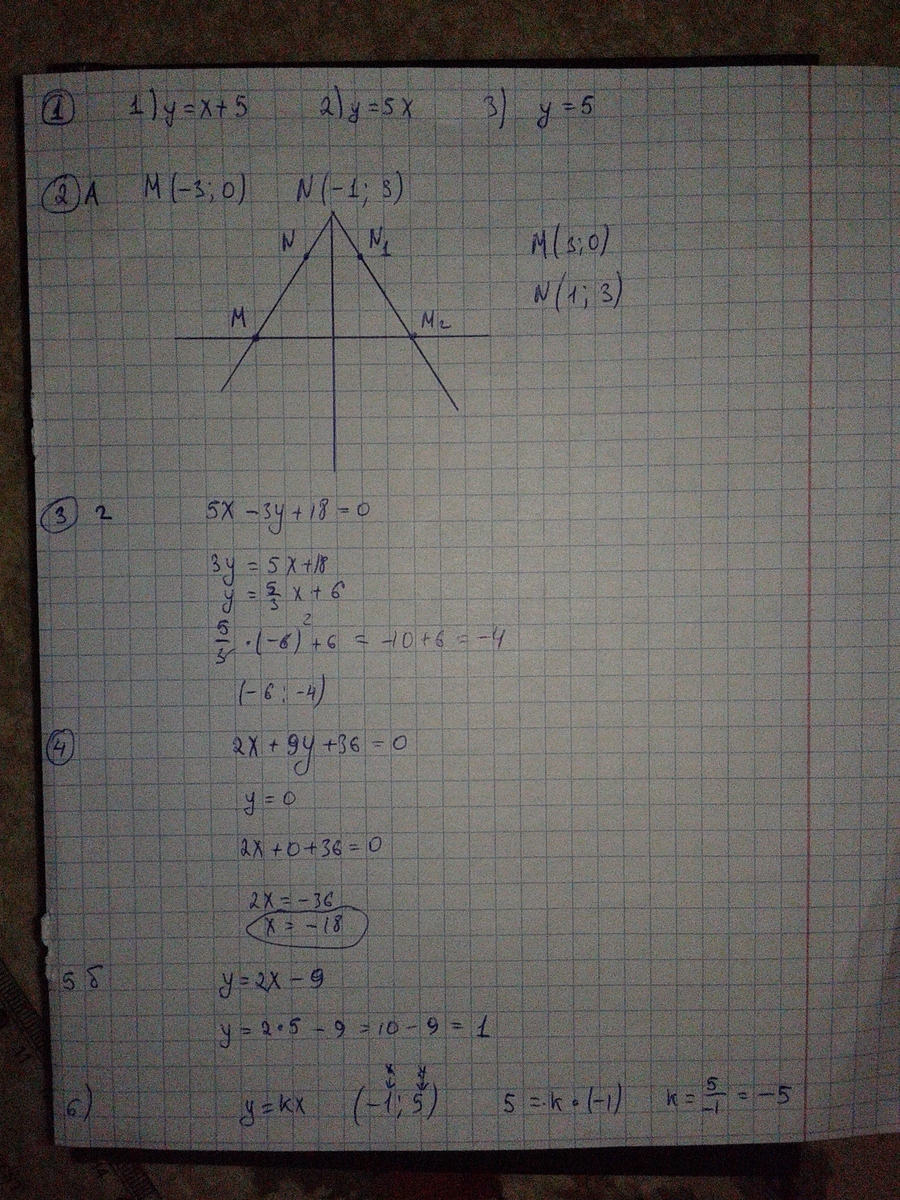 1 1) y = x + 5 2) y = 5x 3) y = 5
2 А M(-3; 0) N(-1; 3)
N N1 M(3; 0)
N(1; 3)
M M2
3 г 5x - 3y + 18 = 0
3y = 5x + 18
y = 5/3 x + 6
5/3 · (-6)² + 6 = -10 + 6 = -4
(-6; -4)
4 2x + 9y + 36 = 0
y = 0
2x + 0 + 36 = 0
2x = -36
x = -18
5 б y = 2x - 9
y = 2·5 - 9 = 10 - 9 = 1
x y
6) y = kx (-1; 5) 5 = k · (-1) k = 5/-1 = -5